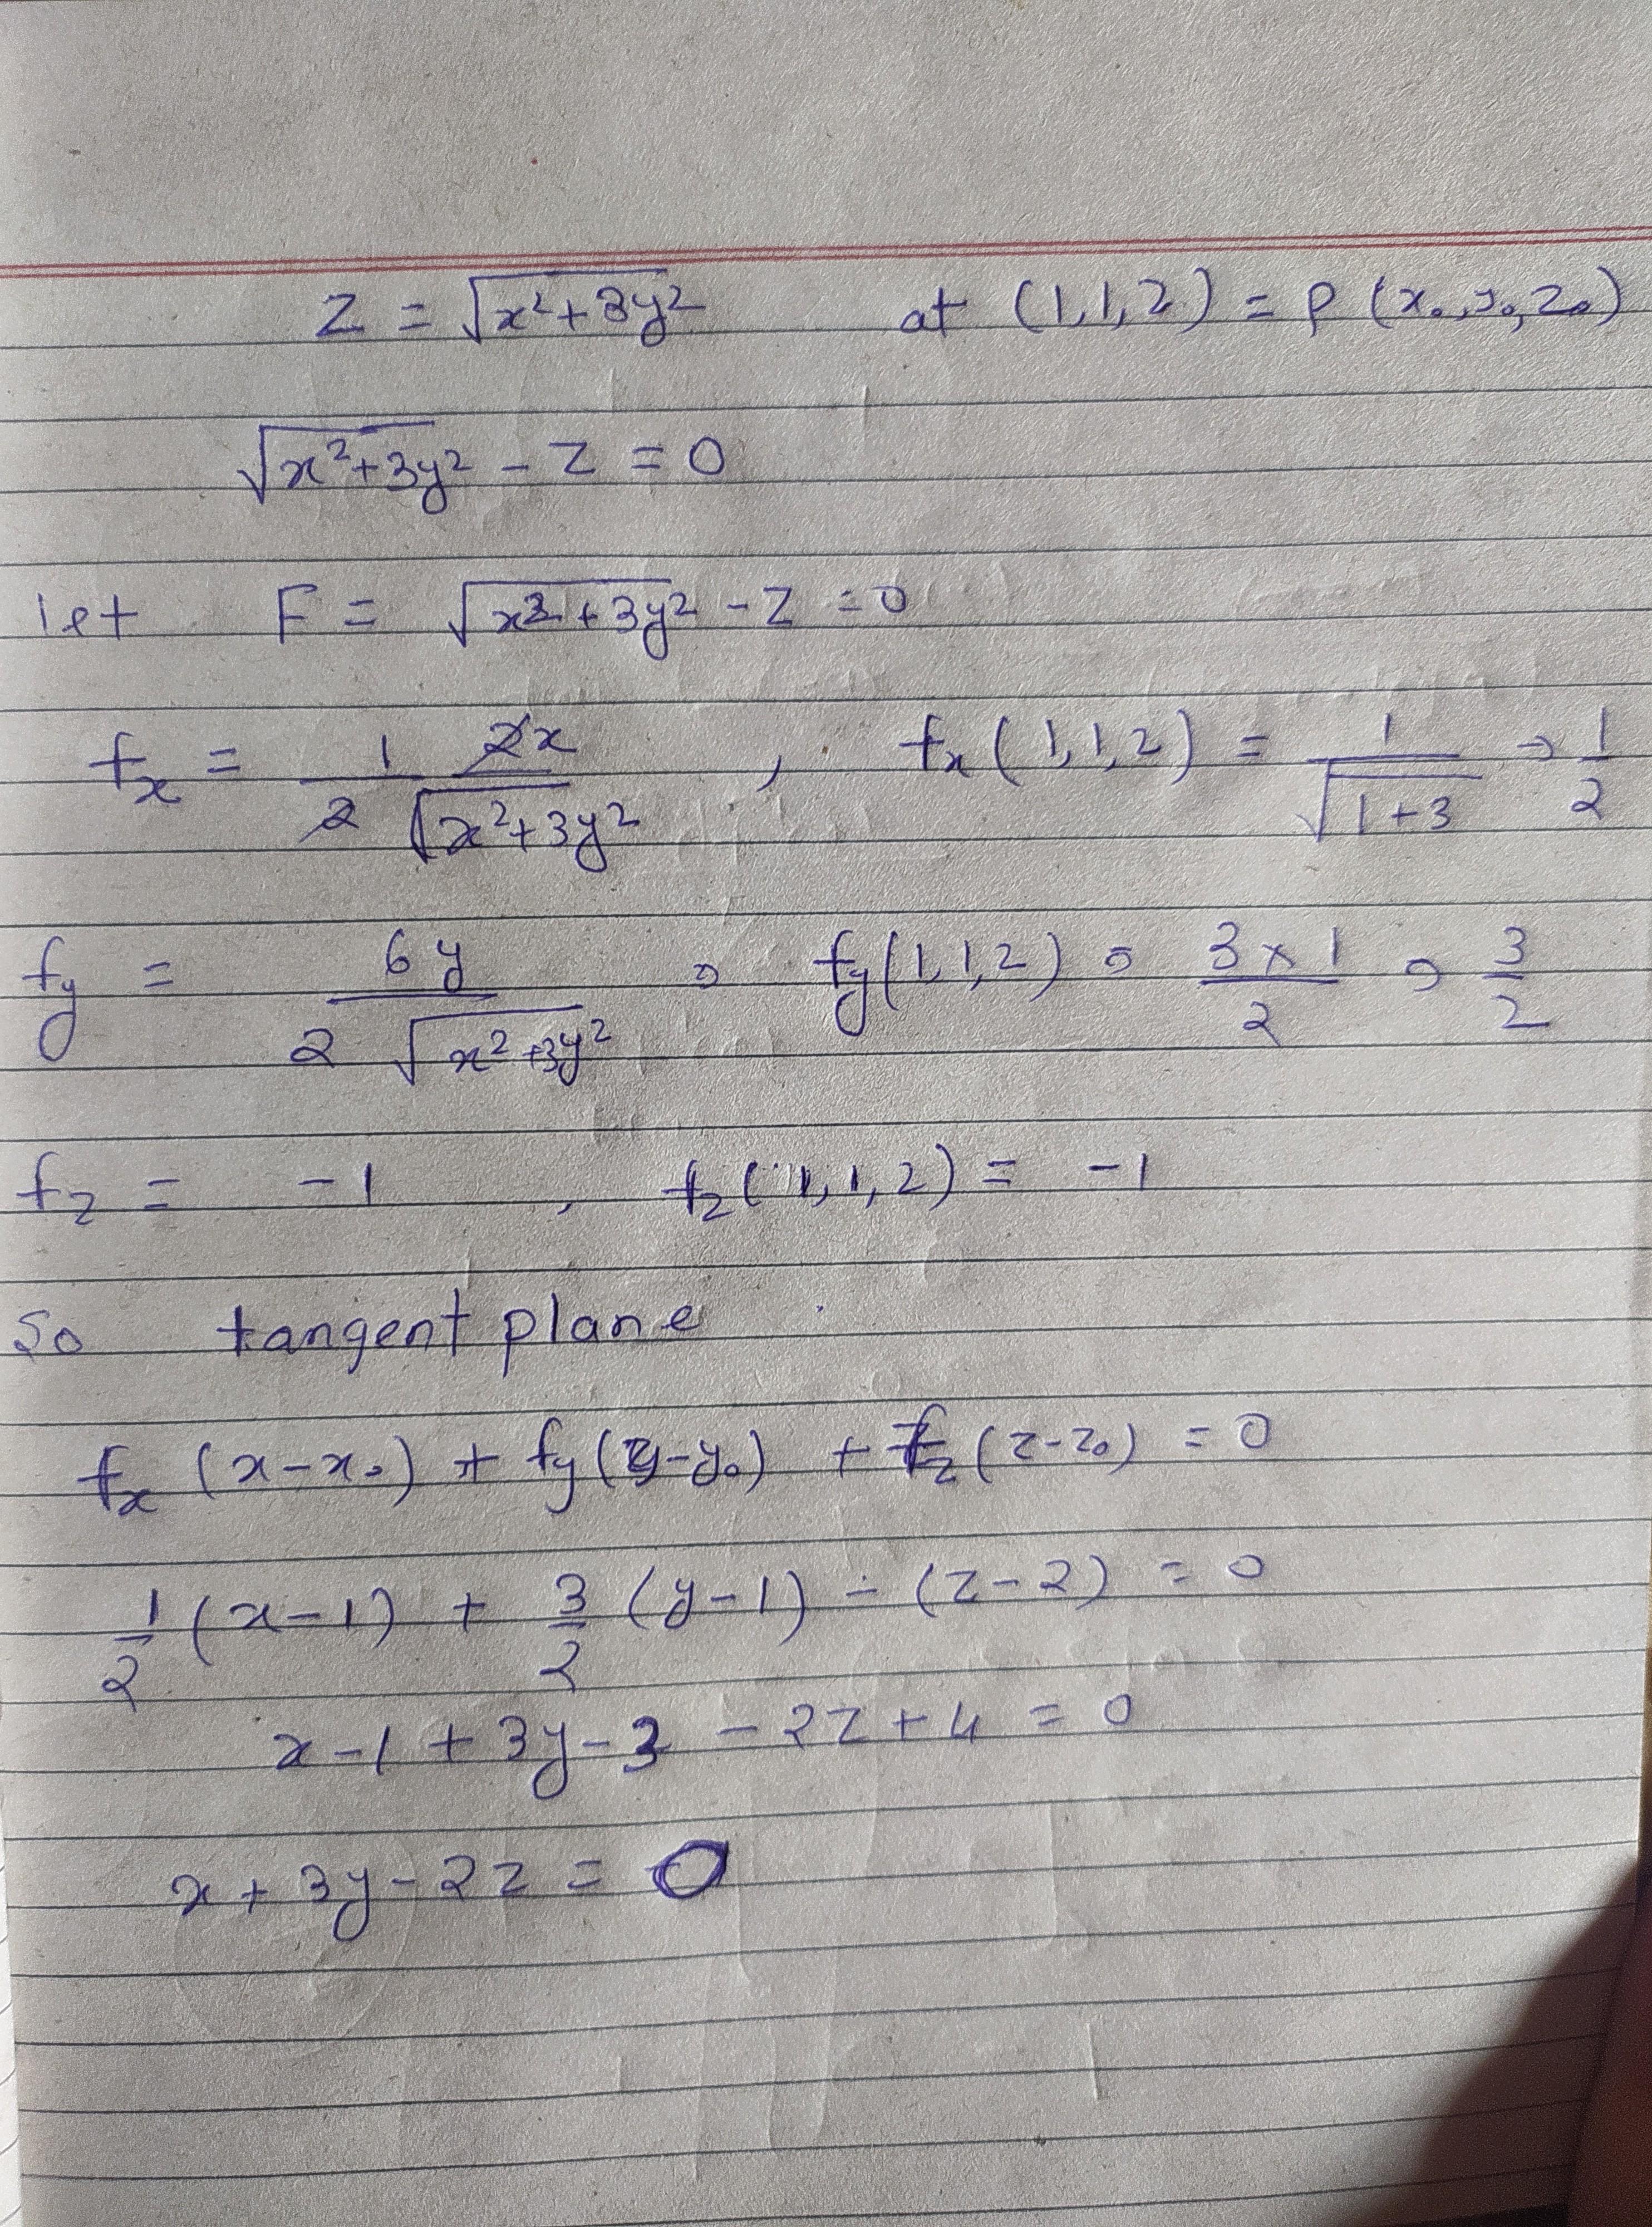 z = √(x²+3y²) at (1,1,2) = P (x₀,y₀,z₀)
√(x²+3y²) - z = 0
let F = √(x²+3y²) - z = 0
fx = 1/2 2x/√(x²+3y²) , fx(1,1,2) = 1/√(1+3) → 1/2
fy = 6y/(2√(x²+3y²)) ⇒ fy(1,1,2) ⇒ (3×1)/2 ⇒ 3/2
fz = -1 , fz(1,1,2) = -1
So tangent plane
fx (x-x₀) + fy(y-y₀) + fz(z-z₀) = 0
1/2(x-1) + 3/2 (y-1) - (z-2) = 0
x-1 + 3y-3 - 2z+4 = 0
x + 3y - 2z = 0